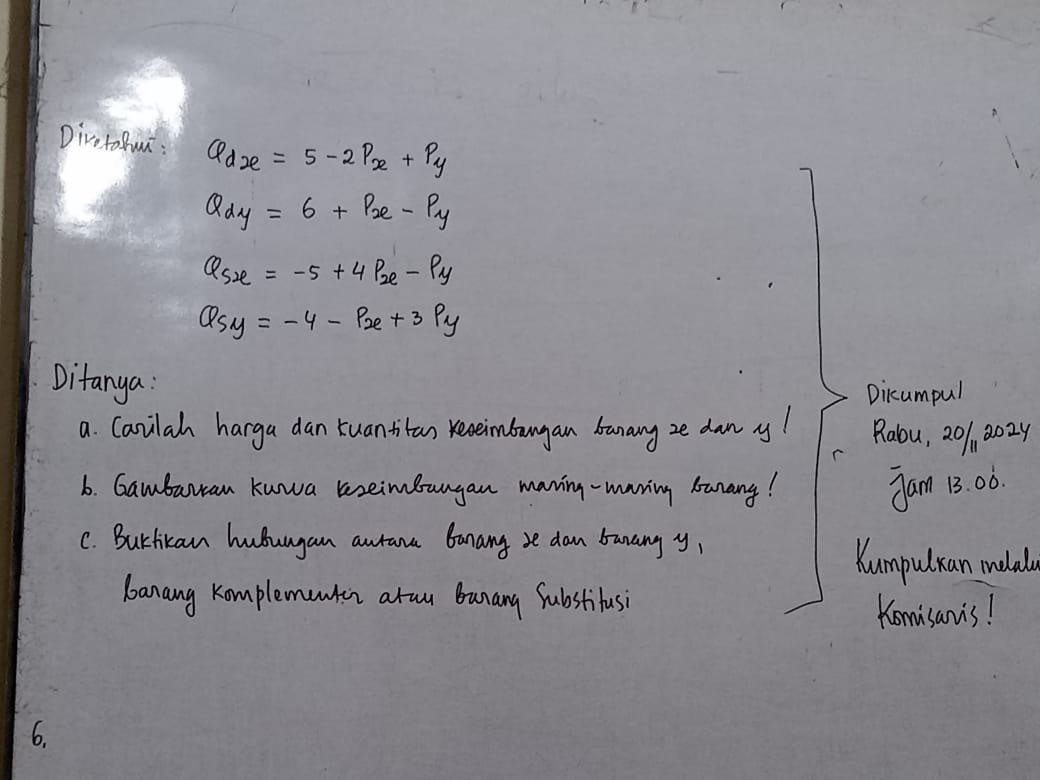 Diketahui: Qdx = 5 - 2Px + Py
Qdy = 6 + Px - Py
Qsx = -5 + 4Px - Py
Qsy = -4 - Px + 3Py
Ditanya:
a. Carilah harga dan kuantitas keseimbangan barang x dan y!
b. Gambarkan kurva keseimbangan masing-masing barang!
c. Buktikan hubungan antara barang x dan barang y,
barang komplementer atau barang substitusi
Dikumpul
Rabu, 20/11 2024
Jam 13.00.
Kumpulkan melalui
Komisaris!
6.